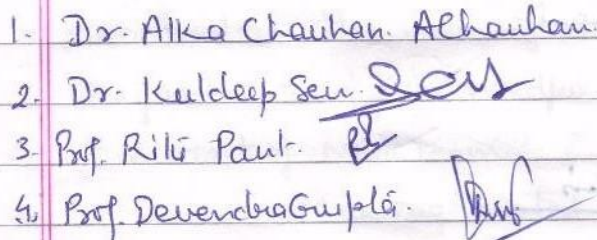 1. Dr. Alka Chauhan. AChauhan.
2. Dr. Kuldeep Sen.
3. Prof. Ritu Pant.
4. Prof. Devendra Gupta.